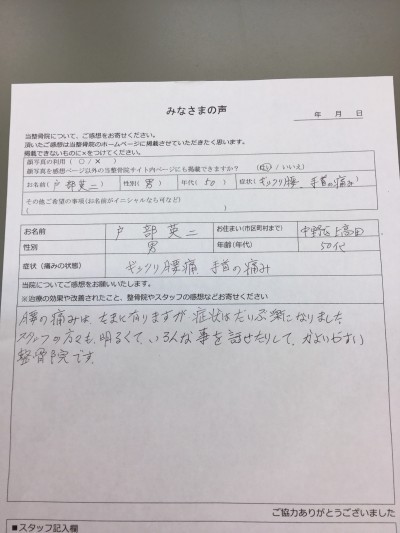 みなさまの声
年 月 日
当整骨院について、ご感想をお寄せください。
頂いたご感想は当整骨院のホームページに掲載させていただきたく思います。
掲載できないものに×をつけてください。
顔写真の利用 ( ○ / × )
顔写真を感想ページ以外の当整骨院サイト内ページにも掲載できますか? ( はい / いいえ )
お名前( 戸部英二 ) 性別( 男 ) 年代( 50 ) 症状( ギックリ腰、手首の痛み )
その他ご希望の事項(お名前がイニシャルなら可など)
( )
お名前 戸部英二 お住まい(市区町村まで) 中野区上高田
性別 男 年齢(年代) 50代
症状(痛みの状態) ギックリ腰痛 手首の痛み
当院についてご感想をお願いいたします。
※治療の効果や改善されたこと、整骨院やスタッフの感想などお寄せください
腰の痛みは、たまに有りますが症状はだいぶ楽になりました。
スタッフの方々も、明るくて、いろんな事を話せたりして、かよいやすい
整骨院です。
ご協力ありがとうございました
■スタッフ記入欄